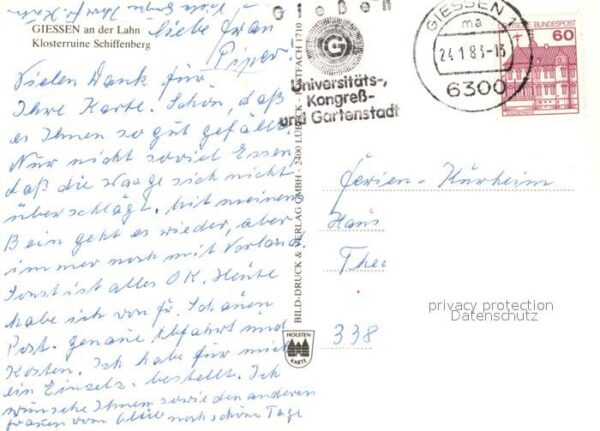 GIESSEN an der Lahn
Klosterruine Schiffenberg
Liebe Frau
Piper!
Vielen Dank für
Ihre Karte. Schön, daß
es Ihnen so gut gefällt.
Nur nicht soviel Essen,
daß die Waage sich nicht
überschlägt. Mit meinem
Bein geht es wieder, aber
immer noch mit Verband
sonst ist alles OK. Heute
habe ich von Fr.
Post. genaue Abfahrt und
Kosten. Ich habe für mich
ein Einzelz. bestellt. Ich
wünsche Ihnen sowie den anderen
Frauen vom noch schöne Tage
Gießen
Universitäts-,
Kongreß-
und Gartenstadt
GIESSEN 1
ma
24.1.83-13
6300
DEUTSCHE BUNDESPOST
60
BILD-DRUCK & VERLAG GMBH - 2400 LÜBECK - POSTFACH 1710
HOLSTEN
KARTE
Ferien-Kurheim
Haus
338
privacy protection
Datenschutz